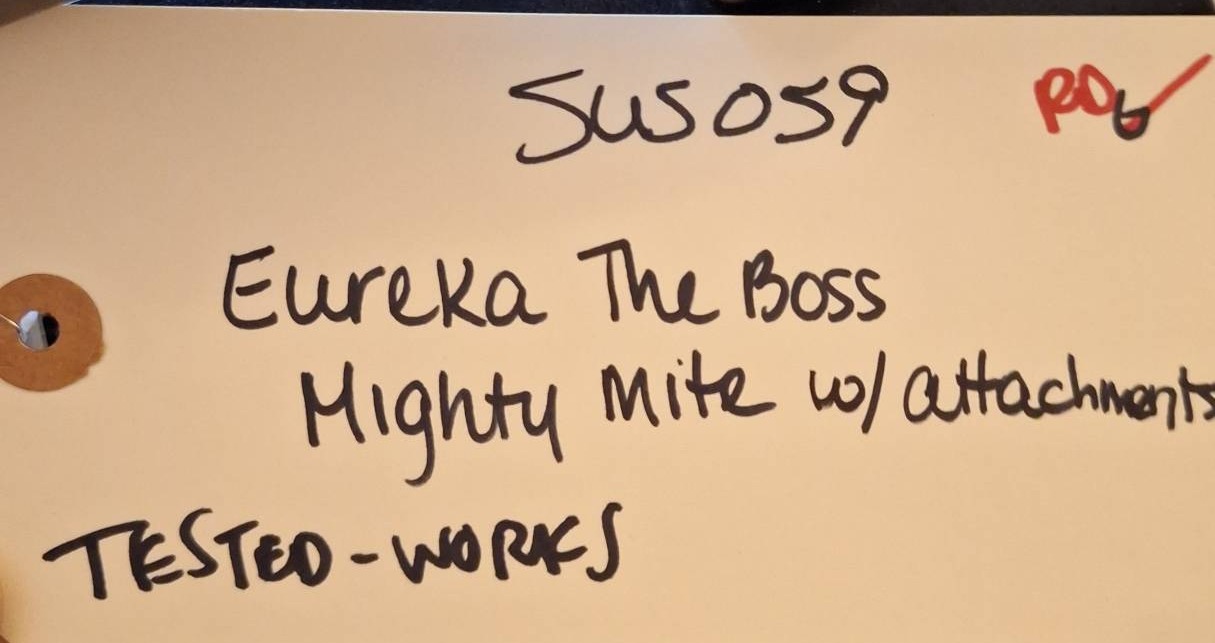 SUS059 RD6
Eureka The Boss
Mighty Mite w/ attachments
TESTED - WORKS